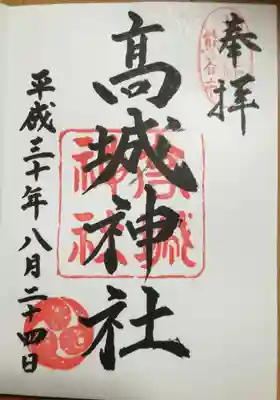 奉拝
髙城神社
平成三十年八月二十四日
高城
神社